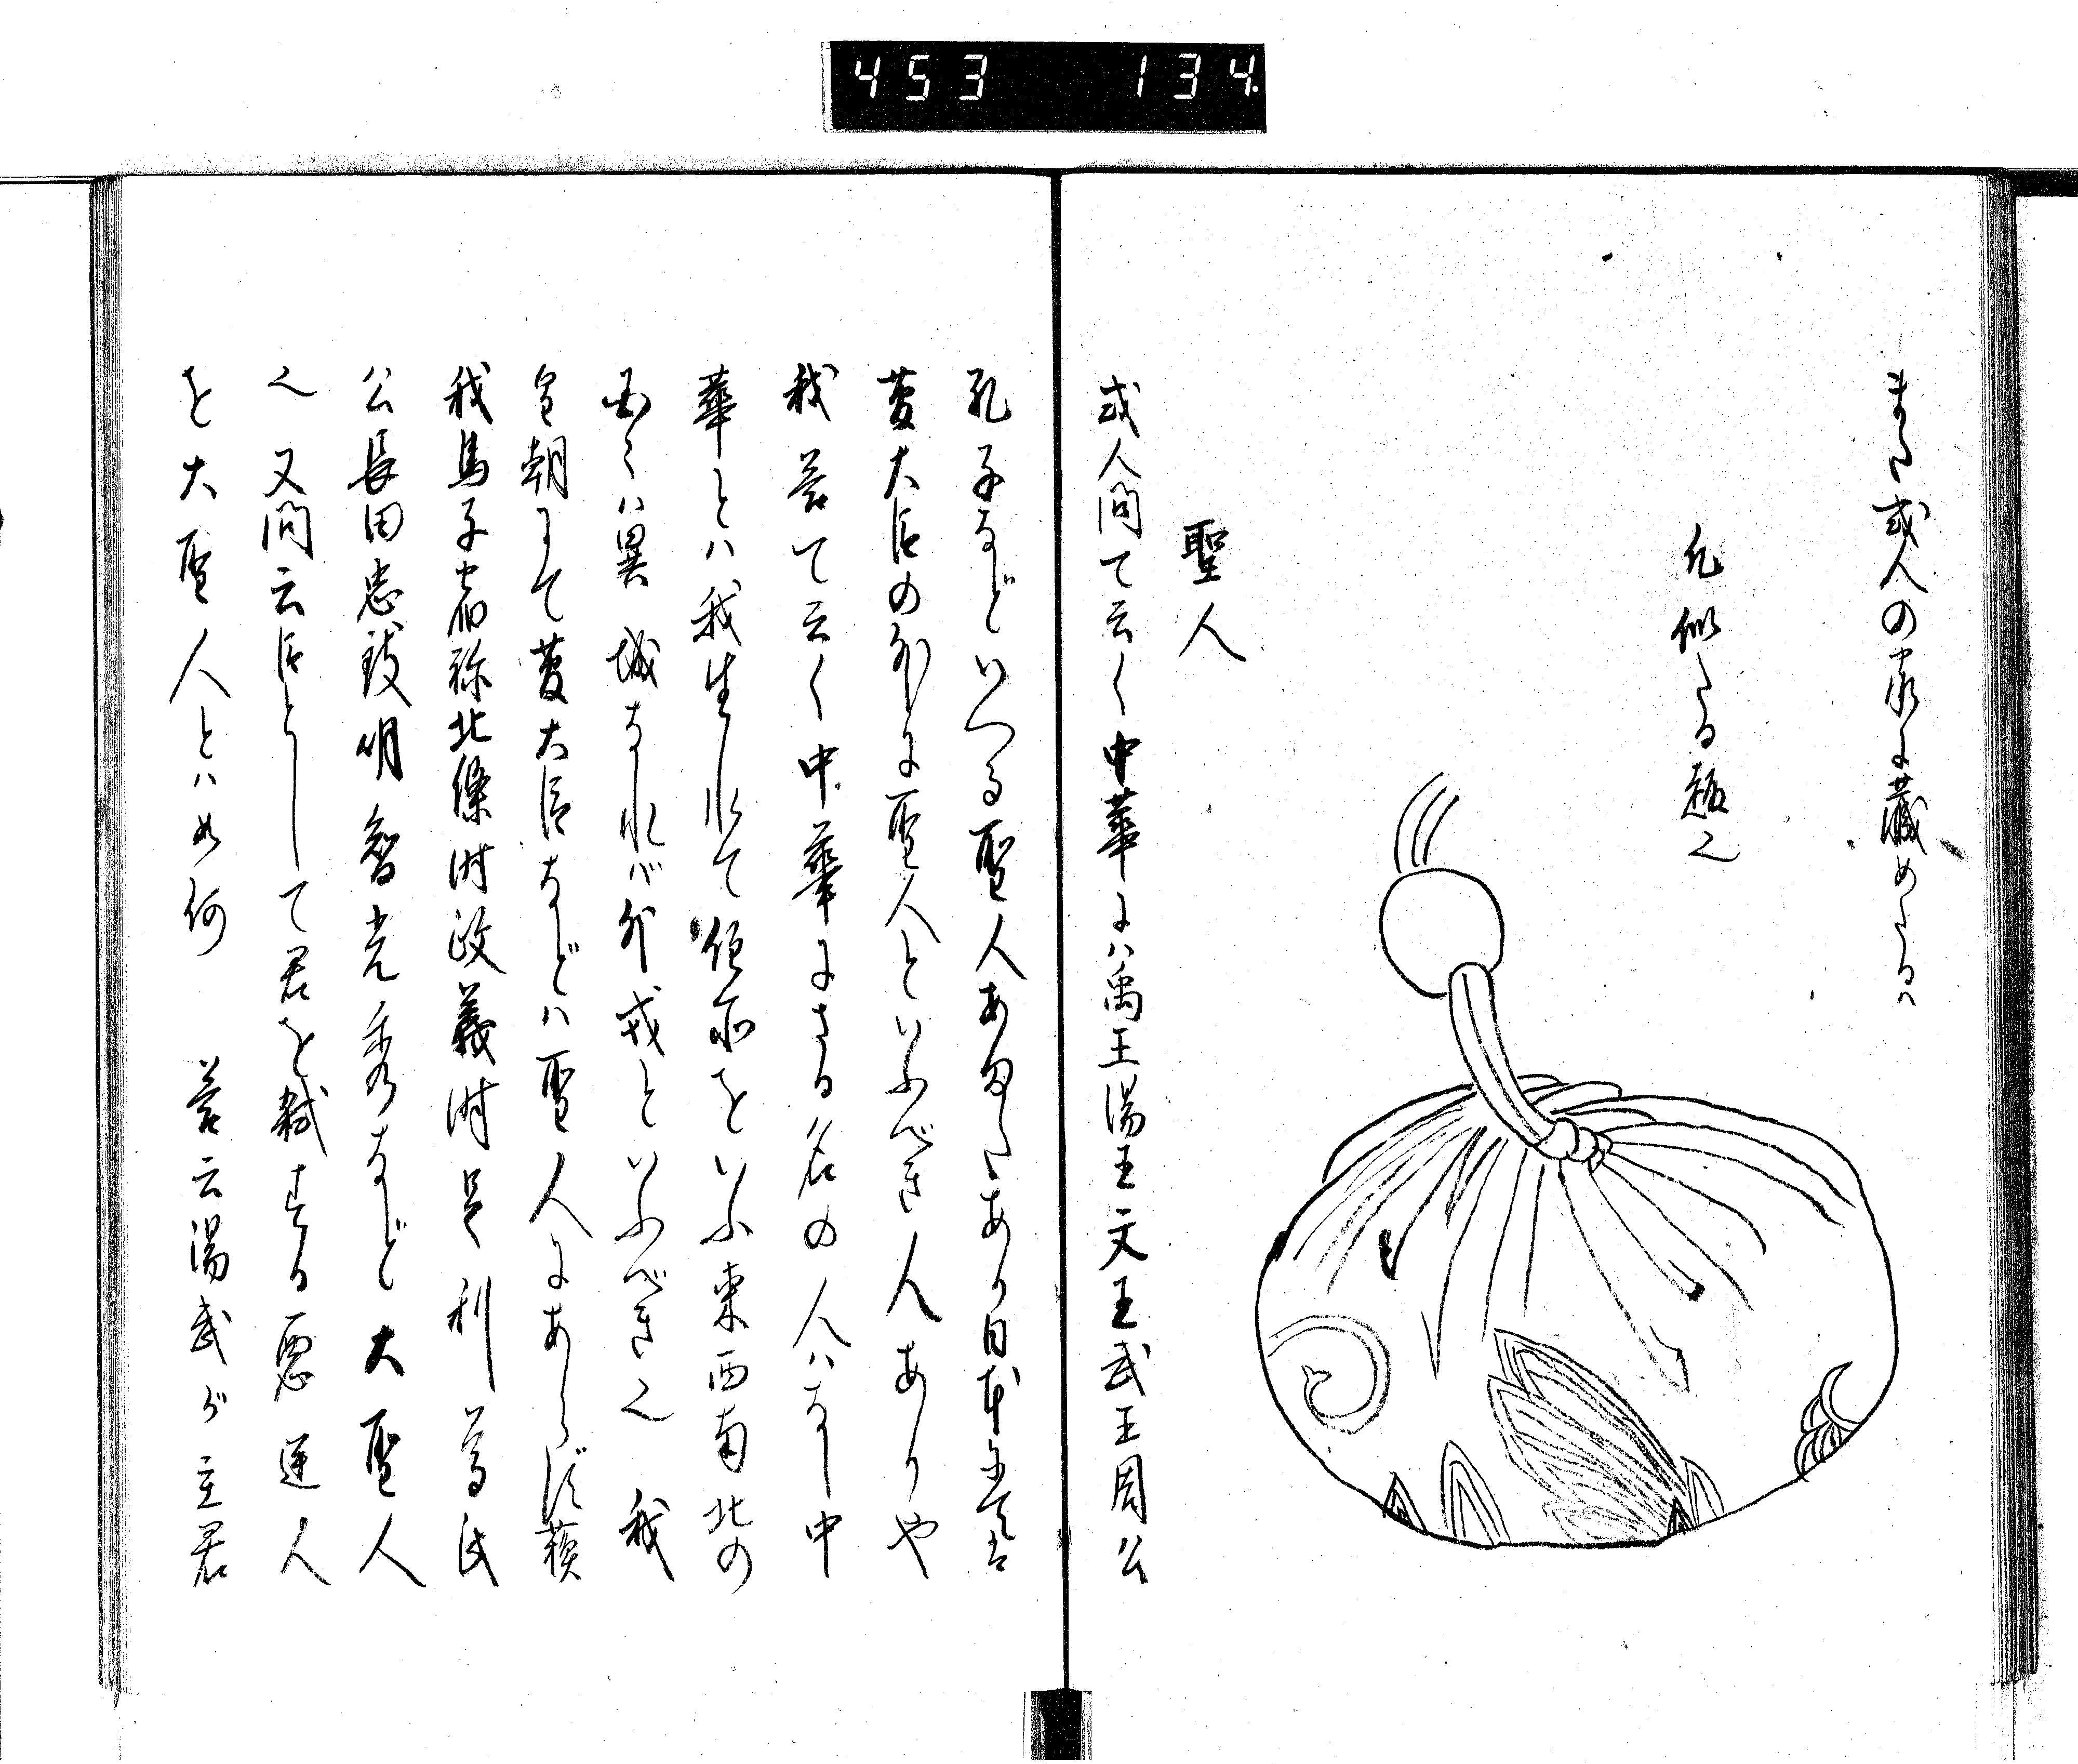 453 134
また或人の家に藏めたるハ
凡似たる趣也
聖人
或人問て云く中華にハ禹王湯王文王武王周公
孔子などいへる聖人あまたあり日本にては吉
菅大臣の外に聖人といふべき人ありや
我答て云く中華にさる名の人ハなし中
華とハ我生れて住所をいふ東西南北の
国々ハ異域なれバ外戎といふべき也 我
皇朝にて菅大臣などハ聖人にあらず蘇
我馬子宿祢北條時政義時足利尊氏
公長田忠致明智光秀など大聖人
也 又問云臣として君を弑する悪逆人
を大聖人とハ如何 答云湯武が主君